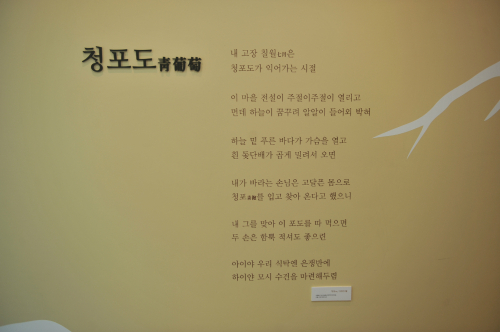 청포도靑葡萄
내 고장 칠월七月은
청포도가 익어가는 시절
이 마을 전설이 주절이주절이 열리고
먼데 하늘이 꿈꾸려 알알이 들어와 박혀
하늘 밑 푸른 바다가 가슴을 열고
흰 돛단배가 곱게 밀려서 오면
내가 바라는 손님은 고달픈 몸으로
청포靑袍를 입고 찾아 온다고 했으니
내 그를 맞아 이 포도를 따 먹으면
두 손은 함뿍 적셔도 좋으련
아이야 우리 식탁엔 은쟁반에
하이얀 모시 수건을 마련해두렴